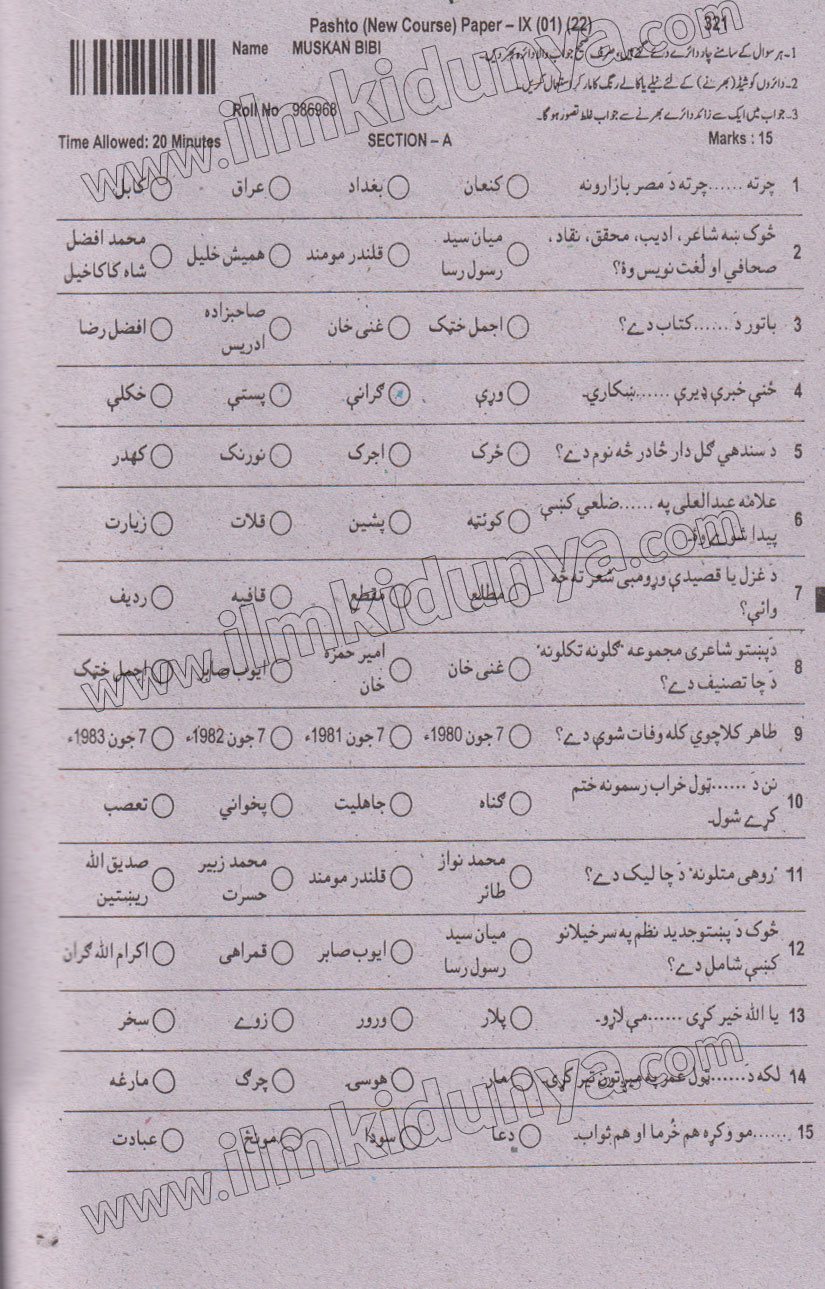 Pashto (New Course) Paper – IX (01) (22) 321
Name MUSKAN BIBI
1۔ ہر سوال کے سامنے چار دائرے دئے گئے ہیں، صرف صحیح جواب والا دائرہ بھر دیں۔
2۔ دائروں کو شیڈ (بھرنے) کے لئے نیلے یا کالے رنگ کا مارکر استعمال کریں۔
Roll No 986968
3۔ جواب میں ایک سے زائد دائرے بھرنے سے جواب غلط تصور ہو گا۔
Time Allowed: 20 Minutes SECTION – A Marks : 15
1 چرته ......چرته دَ مصر بازارونه ○ کنعان ○ بغداد ○ عراق ○ کابل
2 څوک ښه شاعر، ادیب، محقق، نقاد، ○ میان سید ○ قلندر مومند ○ همیش خلیل ○ محمد افضل
صحافي او لُغت نویس وۀ؟ رسول رسا شاه کاکاخیل
3 باتور دَ ......کتاب دے؟ ○ اجمل خټک ○ غنی خان ○ صاحبزاده ○ افضل رضا
ادریس
4 ځنې خبرې ډیرې ......ښکاري۔ ○ وړې ○ ګرانې ○ پستې ○ خکلې
5 دَ سندهي ګل دار څادر څه نوم دے؟ ○ څرک ○ اجرک ○ نورنک ○ کهدر
6 علامه عبدالعلی په ......ضلعي کښې ○ کوئټه ○ پشین ○ قلات ○ زیارت
پیدا شوے وۀ۔
7 دَ غزل یا قصیدې وړومبی شعر ته څه ○ مطلع ○ مقطع ○ قافیه ○ ردیف
وائې؟
8 دَپښتو شاعرۍ مجموعه "ګلونه تکلونه" ○ غنی خان ○ امیر حمزه ○ ایوب صابر ○ اجمل خټک
دَ چا تصنیف دے؟ خان
9 طاهر کلاچوي کله وفات شوې دے؟ ○ 7 جون 1980ء ○ 7 جون 1981ء ○ 7 جون 1982ء ○ 7 جون 1983ء
10 نن دَ ......ټول خراب رسمونه ختم ○ ګناه ○ جاهلیت ○ پخواني ○ تعصب
کړے شول۔
11 "روهی متلونه" دَ چا لیک دے؟ ○ محمد نواز ○ قلندر مومند ○ محمد زبیر ○ صدیق الله
طائر حسرت ریښتین
12 څوک دَ پښتوجدید نظم په سرخیلانو ○ میان سید ○ ایوب صابر ○ قمراهی ○ اکرام الله ګران
کښې شامل دے؟ رسول رسا
13 یا الله خیر کړی ......مې لاړو۔ ○ پلار ○ ورور ○ زوے ○ سخر
14 لکه دَ......ټول عمر په میړتون تیر کړی۔ ○ مار ○ هوسۍ ○ چرګ ○ مارغه
15 ......مو وکړه هم خُرما او هم ثواب۔ ○ دعا ○ سودا ○ مونځ ○ عبادت
www.ilmkidunya.com
www.ilmkidunya.com
www.ilmkidunya.com